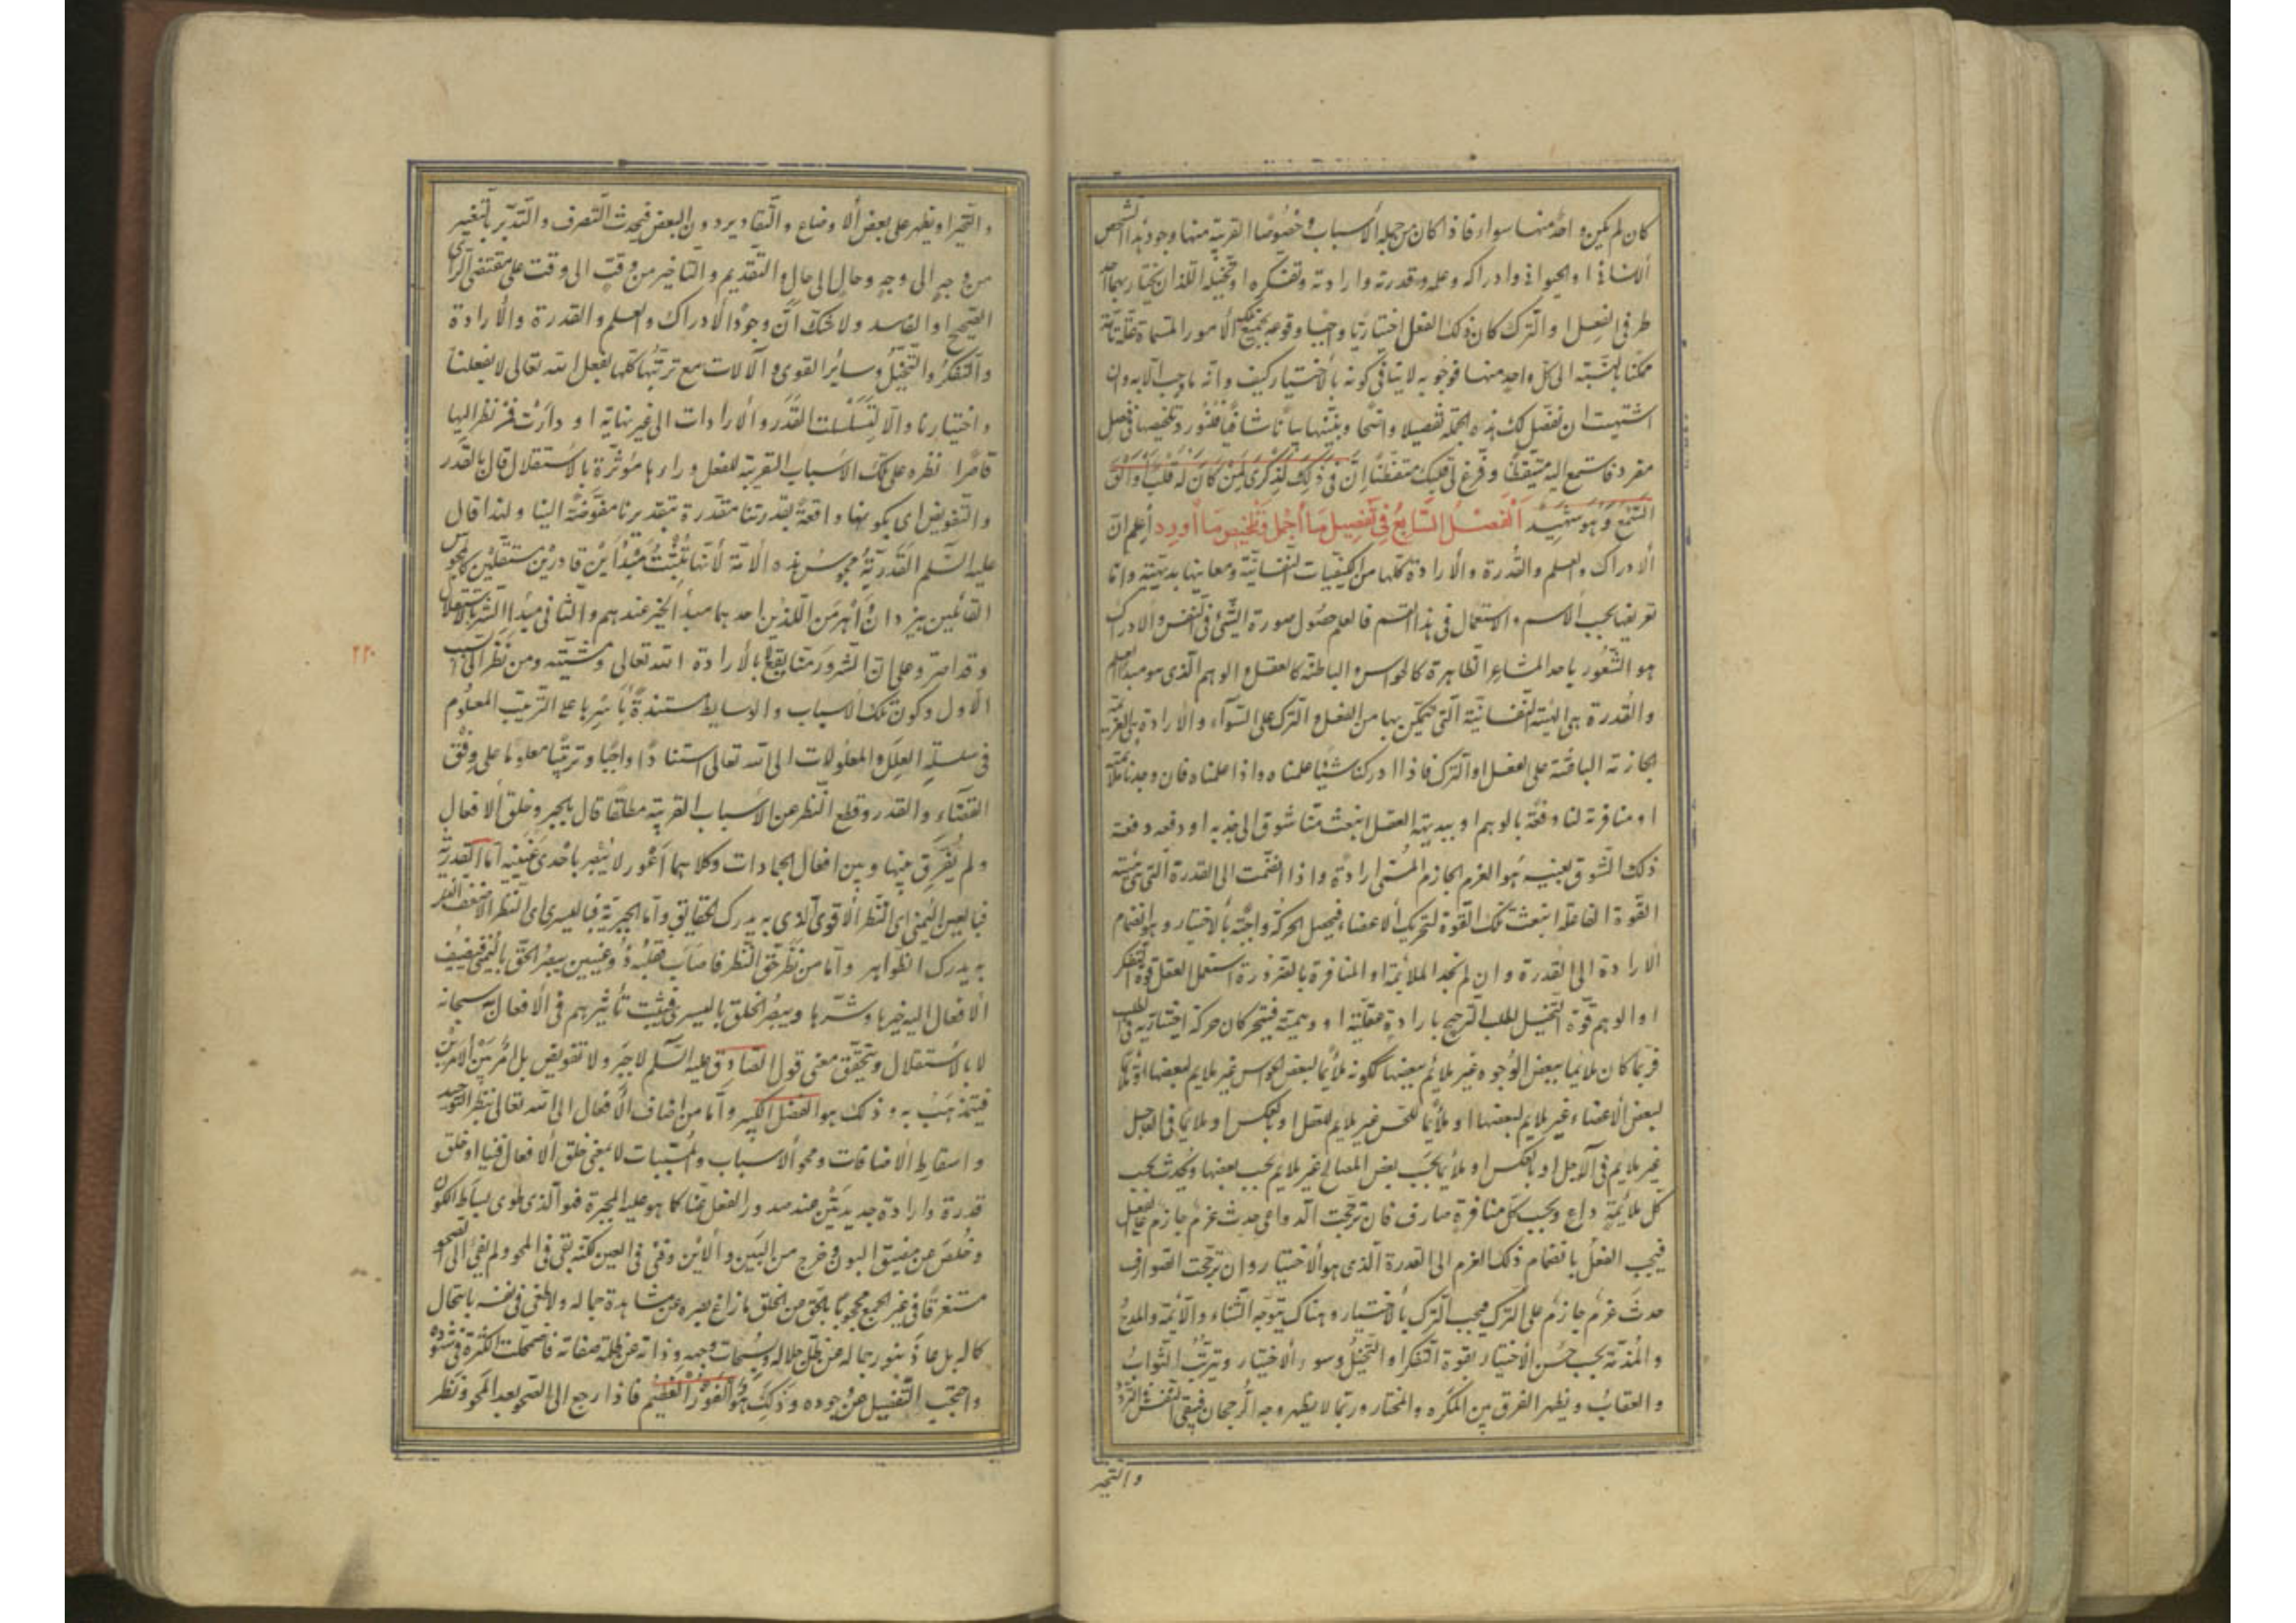 كان لم يكن واحد منها سواء فاذا كان من جملة الأسباب وخصوصًا القريبة منها وجود هذا الشخص
الانسانى او الحيوانى وادراكه وعلمه وقدرته وارادته وتفكره او تخيله اللذان يختار بهما احد
طرفى الفعل او الترك كان ذلك الفعل اختياريًا واجبًا وقوعه بجميع تلك الأمور المسماة علة تامة
ممكنا بالنسبة الى كل واحد منها فوجوبه لا ينافى كونه بالاختيار كيف وانه ما وجب الا به وان
اشتهيت ان نفصل لك هذه الجملة تفصيلا واضحًا ونبينها بيانًا شافيًا فنورد تلخيصها فى فصل
مفرد فاستمع اليه متيقظًا وفرغ لى قلبك متفطنًا إنّ فى ذلك لذكرى لمن كان له قلب او القى
السمع وهو شهيد الفصل السابع فى تفصيل ما أجمل وتلخيص ما أورد اعلم ان
الادراك والعلم والقدرة والارادة كلها من الكيفيات النفسانية ومعاينها بديهية وانما
تعريفها بحسب الاسم والاستعمال فى هذا القسم فالعلم حصول صورة الشىء فى النفس والادراك
هو الشعور باحد المشاعر الظاهرة كالحواس والباطنة كالعقل والوهم الذى هو مبدا العلم
والقدرة هى الهيئة النفسانية التى يتمكن بها من الفعل والترك على السوآء والارادة هى العزيمة
الجازمة الباعثة على الفعل او الترك فاذا ادركنا شيئا علمناه واذا علمناه فان وجدنا ملائمته
او منافرته لنا دفعة بالوهم او ببديهة العقل انبعث منا شوق الى جذبه او دفعه دفعة
ذلك الشوق بعينيه هو العزم الجازم المسمى ارادة واذا انضمت الى القدرة التى هى هيئة
القوة الفاعلة انبعثت تلك القوة لتحريك الاعضاء فيحصل الحركة واجبة بالاختيار وهو انضمام
الارادة الى القدرة وان لم نجد الملائمة او المنافرة بالضرورة استعمل العقل قوة التفكر
او الوهم قوة التخيل لطلب الترجيح بارادة عقلية او وهمية فيتحركان حركة اختيارية فى الطلب
فربما كان ملائما ببعض الوجوه غير ملائم ببعضها ككونه ملائما لبعض الحواس غير ملايم لبعضها او ملائما
لبعض الاعضاء غير ملايم لبعضها او ملائما للحس غير ملايم للعقل او بالعكس او ملائما فى العاجل
غير ملايم فى الآجل او بالعكس او ملائما بحسب بعض المصالح غير ملايم بحسب بعضها ويحدث بحسب
كل ملائمة داع وبحسب كل منافرة صارف فان ترجحت الدواعى حدث عزم جازم على الفعل
فيجب الفعل بانضمام ذلك العزم الى القدرة الذى هو الاختيار وان ترجحت الصوارف
حدث عزم جازم على الترك فيجب الترك بالاختيار وهناك يتوجه الثناء واللائمة والمدح
والمذمة بحسب حسن الاختيار بقوة التفكر او التخيل وسوء الاختيار ويترتب الثواب
والعقاب ويظهر الفرق بين المكره والمختار وربما لا يظهر وجه الرجحان فيبقى النفس التردد
والتحير
والتحير او يظهر على بعض الاوضاع والتقادير دون البعض فيحدث التصرف والتدبر بالتغيير
من وجه الى وجه وحال الى حال والتقديم والتاخير من وقت الى وقت على مقتضى الراى
الصحيح او الفاسد ولا شك انّ وجود الادراك والعلم والقدرة والارادة
والتفكر والتخيل وساير القوى والآلات مع ترتبها كلها بفعل الله تعالى لا بفعلنا
واختيارنا والا لتسلسلت القدر والارادات الى غير نهاية او دارت فمن نظر اليها
قاصرا نظره على تلك الاسباب القريبة للفعل ورآها مؤثرة بالاستقلال قال بالقدر
والتفويض اى بكونها واقعة بقدرتنا مقدرة بتقديرنا مفوضة الينا ولهذا قال
عليه السلم القدرية مجوس هذه الامة لانها تثبت مبدأين قادرين مستقلين كالمجوس
القائلين بيزدان وأهرمن اللذين احدهما مبدأ الخير عندهم والثانى مبدأ الشر بالاستقلال
وقد اصروا على ان الشرور متا يقع لا بالارادة الله تعالى ومشيته ومن نظر الى السبب
الاول وكون تلك الاسباب والوسايط مستندة بأسرها على الترتيب المعلوم
فى سلسلة العلل والمعلولات الى الله تعالى استنادًا واجبًا وترتيبًا معلوما على وفق
القضاء والقدر وقطع النظر عن الاسباب القريبة مطلقا قال بالجبر وخلق الافعال
ولم يفرق بينها وبين افعال الجمادات وكلاهما اعور لا يبصر باحدى عينيه اما القدرية
فبالعين اليمنى اى النظر الاقوى الذى به يدرك الحقايق واما الجبرية فباليسرى اى النظر الاضعف الذى
به يدرك الظواهر وأما من نظر حق النظر فاصاب فقلبه ذو عينين يبصر الحق باليمنى فيضيف
الافعال اليه خيرها وشرها ويبصر الخلق باليسرى فيثبت تأثيرهم فى الافعال به سبحانه
لا بالاستقلال ويتحقق معنى قول الصادق عليه السلم لا جبر ولا تفويض بل امر بين الامرين
فيتمذهب به وذلك هو الفضل الكبير وأما من اضاف الافعال الى الله تعالى بنظر التوحيد
واسقاط الاضافات ومحو الاسباب والمسببات لا بمعنى خلق الافعال فينا او خلق
قدرة وارادة جديدتين عند صدور الفعل عنا كما هو عليه المجبرة فهو الذى طوى بساط الكون
وخلص عن مضيق البون وخرج من البين والاين وفنى فى العين لكنه بقى فى المحو ولم يفئ الى الصحو
مستغرقًا فى عين الجمع محجوبًا بالحق عن الخلق ما زاغ بصره عن مشاهدة جماله ولا طغى فى نفسه بانتحال
كماله بل عاذ بنور جماله عن ظل جلاله وسبحات وجهه وذاته عن ظلمة صفاته فاضمحلت الكثرة فى شهوده
واحتجب التفصيل عن وجوده وذلك هو الفوز العظيم فاذا رجع الى الصحو بعد المحو ونظر
٢٢٠